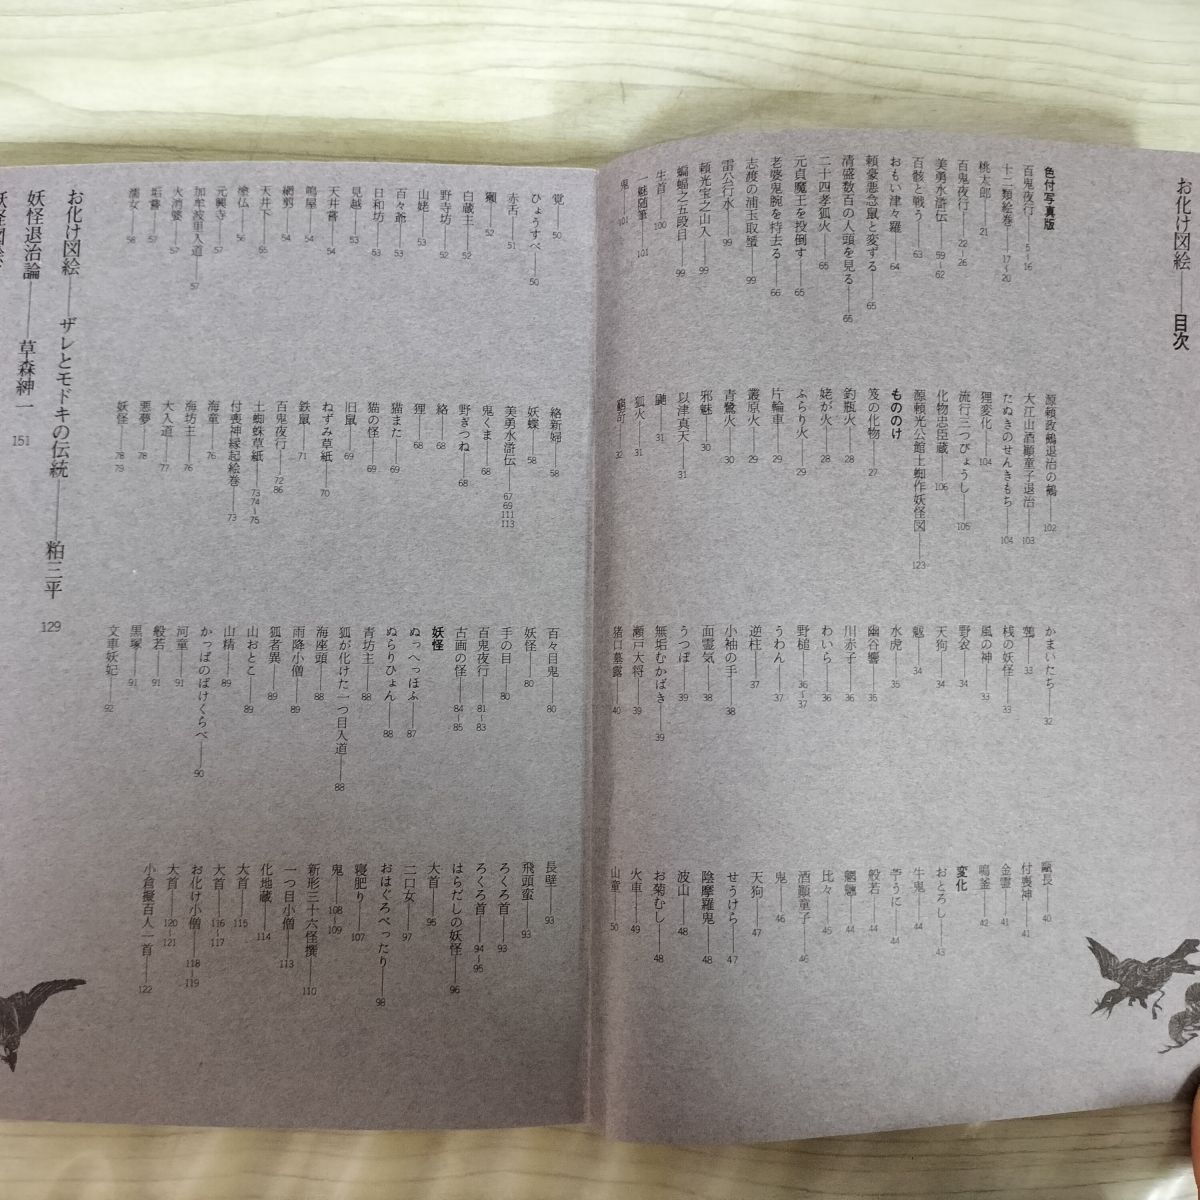 お化け図絵——目次
色付写真版
百鬼夜行——5~16
十二類絵巻——17~20
桃太郎——21
百鬼夜行——22~26
美勇水滸伝——59~62
百骸と戦う——63
おもい津々羅——64
頼豪悪念鼠と変ずる——65
清盛数百の人頭を見る——65
二十四孝狐火——65
元貞魔王を投倒す——65
老婆鬼腕を持去る——66
志渡の浦玉取蜑——99
雷公行水——99
頼光宝之山入——99
蝙蝠之五段目——99
生首——100
一魅随筆——101
鬼——101
源頼政鵺退治の鵺——102
大江山酒顚童子退治——103
たぬきのせんきもち——104
狸変化——104
流行三つびょうし——105
化物忠臣蔵——106
源頼光公館土蜘作妖怪図——123
もののけ
笈の化物——27
釣瓶火——28
姥が火——28
ふらり火——29
片輪車——29
叢原火——29
青鷺火——30
邪魅——30
以津真天——31
鼬——31
狐火——31
窮奇——32
かまいたち——32
鵺——33
桟の妖怪——33
風の神——33
野衾——34
天狗——34
魃——34
水虎——35
幽谷響——35
川赤子——36
わいら——36
野槌——36~37
うわん——37
逆柱——37
小袖の手——38
面霊気——38
うつぼ——39
無垢むかばき——39
瀬戸大将——39
猪口暮露——40
蘢長——40
付喪神——41
金霊——41
鳴釜——42
変化
おとろし——43
牛鬼——44
苧うに——44
般若——44
魍魎——44
比々——45
酒顚童子——46
鬼——46
天狗——47
せうけら——47
陰摩羅鬼——48
波山——48
お菊むし——48
火車——49
山童——50
覚——50
ひょうすべ——50
赤舌——51
獺——52
白蔵主——52
野寺坊——52
山姥——53
百々爺——53
日和坊——53
見越——53
天井嘗——54
鳴屋——54
網剪——54
天井下——55
塗仏——56
元興寺——57
加牟波里入道——57
火消婆——57
垢嘗——57
濡女——58
絡新婦——58
妖蝶——58
美勇水滸伝——67 69 111 113
鬼くま——68
野ぎつね——68
絡——68
狸——68
猫また——69
猫の怪——69
旧鼠——69
ねずみ草紙——70
鉄鼠——71
百鬼夜行——72 86
土蜘蛛草紙——73 74~75
付喪神縁起絵巻——73
海童——76
海坊主——76
大入道——77
悪夢——78
妖怪——78 79
百々目鬼——80
妖怪——80
手の目——80
百鬼夜行——81~83
古画の怪——84~85
妖怪
ぬっへっほふ——87
ぬらりひょん——88
青坊主——88
狐が化けた一つ目入道——88
海座頭——88
雨降小僧——89
狐者異——89
山おとこ——89
山精——89
かっぱのばけくらべ——90
河童——91
般若——91
黒塚——91
文車妖妃——92
長壁——93
飛頭蛮——93
ろくろ首——93
ろくろ首——94~95
はらだしの妖怪——96
大首——96
二口女——97
おはぐろべったり——98
寝肥り——107
鬼——108 109
新形三十六怪撰——110
一つ目小僧——113
化地蔵——114
大首——115
大首——116~117
お化け小僧——118~119
大首——120~121
小倉擬百人一首——122
お化け図絵——ザレとモドキの伝統——粕三平 129
妖怪退治論——草森紳一 151